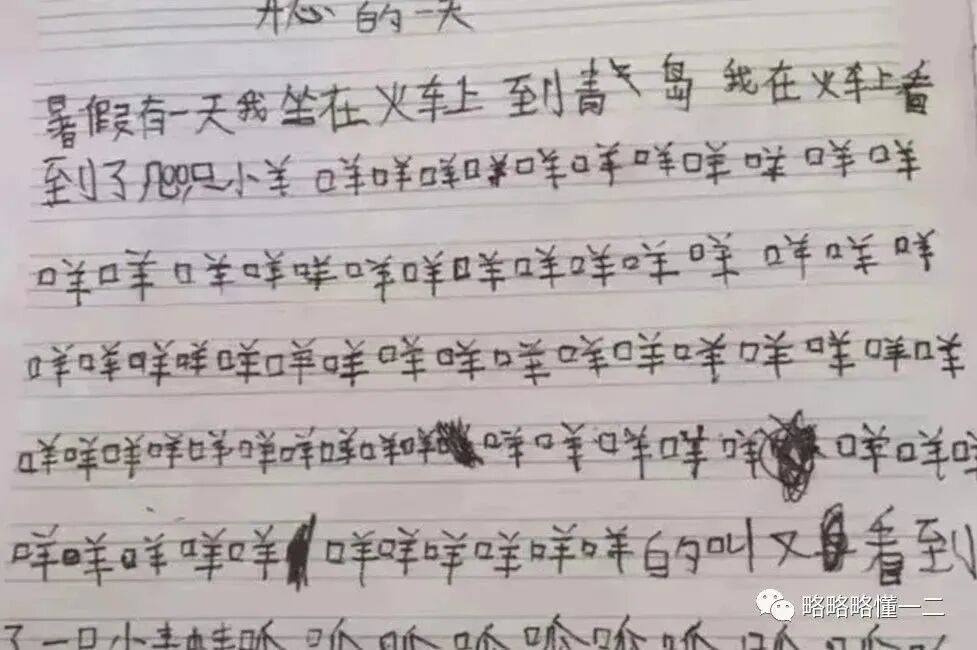 开心的一天
暑假有一天我坐在火车上到青岛我在火车上看
到了几只小羊咩咩咩咩咩咩咩咩咩咩咩
咩咩咩咩咩咩咩咩咩咩咩咩咩咩咩
咩咩咩咩咩咩咩咩咩咩咩咩咩咩咩咩咩
咩咩咩咩咩咩咩咩咩咩咩咩咩咩咩咩咩咩
咩咩咩咩咩咩咩咩咩咩咩的叫又看到
了一只小青蛙呱呱呱呱呱呱呱呱呱
略略略懂一二